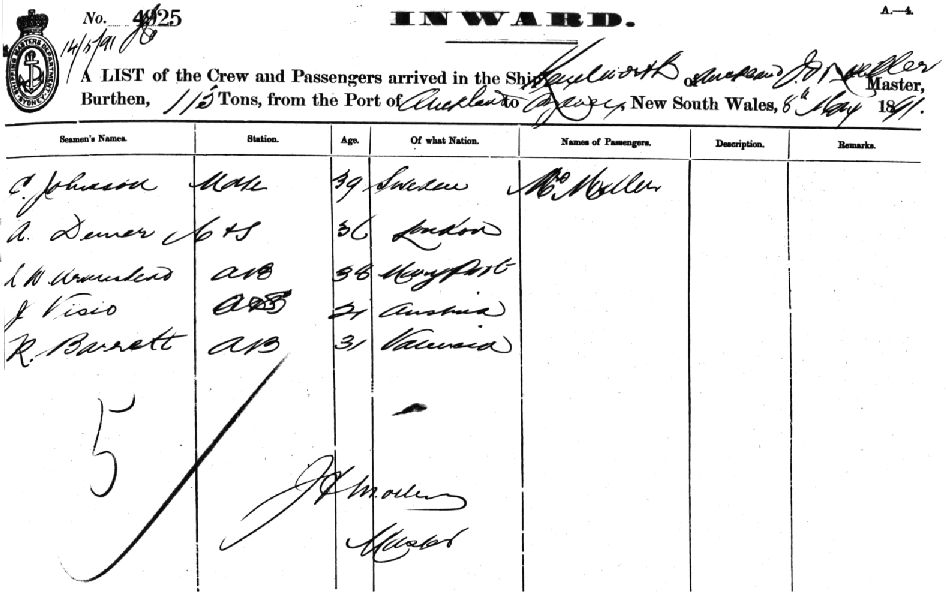 No. 4925 INWARD. A.—4.
14/5/91
SHIPPING MASTERS DEPARTMENT SYDNEY
A LIST of the Crew and Passengers arrived in the Ship of Auckland Master,
Burthen, 113 Tons, from the Port of Auckland to Sydney, New South Wales, 8th May 1891.
Seamen's Names. Station. Age. Of what Nation. Names of Passengers. Description. Remarks.
C. Johnson Mate 39 Sweden Mrs Moller
A. Demer C & S 36 London
AB 38 Mary Port
J Visio AB 21 Austria
R. Barrett AB 31 Valencia
5
Master